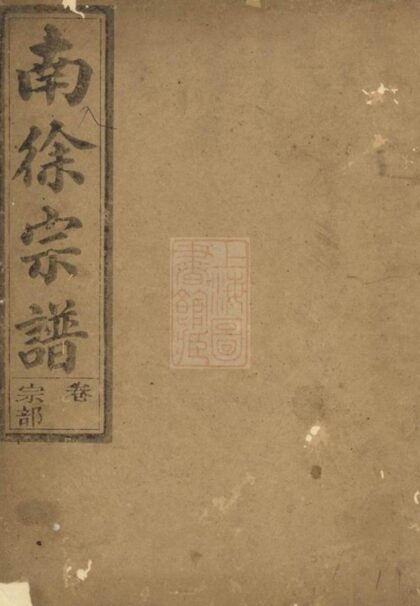 南徐宗譜
卷
宗部
上海圖
書館藏